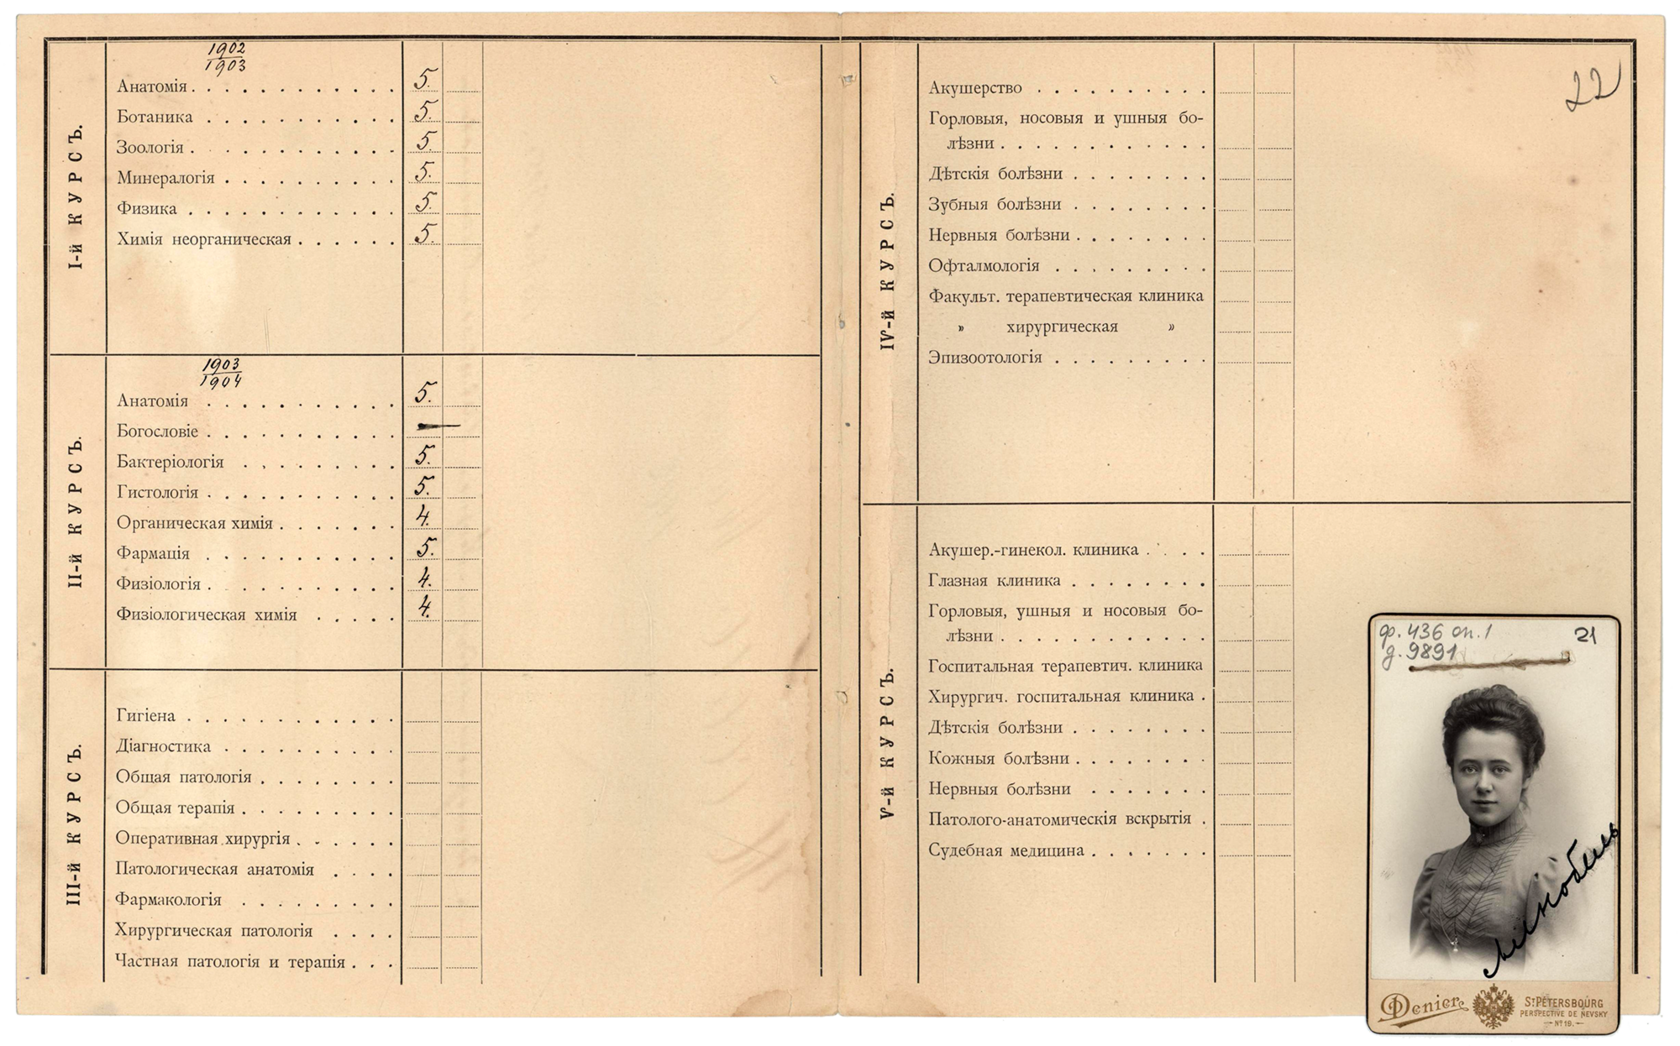 I-й КУРСЪ.
1902
1903
Анатомія 5.
Ботаника 5.
Зоологія 5.
Минералогія 5.
Физика 5.
Химія неорганическая 5.
II-й КУРСЪ.
1903
1904
Анатомія 5.
Богословіе —
Бактеріологія 5.
Гистологія 5.
Органическая химія 4.
Фармація 5.
Физіологія 4.
Физіологическая химія 4.
III-й КУРСЪ.
Гигіена
Діагностика
Общая патологія
Общая терапія
Оперативная хирургія
Патологическая анатомія
Фармакологія
Хирургическая патологія
Частная патологія и терапія
22
IV-й КУРСЪ.
Акушерство
Горловыя, носовыя и ушныя бо-
лѣзни
Дѣтскія болѣзни
Зубныя болѣзни
Нервныя болѣзни
Офталмологія
Факульт. терапевтическая клиника
» хирургическая »
Эпизоотологія
V-й КУРСЪ.
Акушер.-гинекол. клиника
Глазная клиника
Горловыя, ушныя и носовыя бо-
лѣзни
Госпитальная терапевтич. клиника
Хирургич. госпитальная клиника
Дѣтскія болѣзни
Кожныя болѣзни
Нервныя болѣзни
Патолого-анатомическія вскрытія
Судебная медицина
ф. 436 оп. 1 21
д. 9891
Denier
St PÉTERSBOURG
PERSPECTIVE DE NEVSKY
Nº 19.